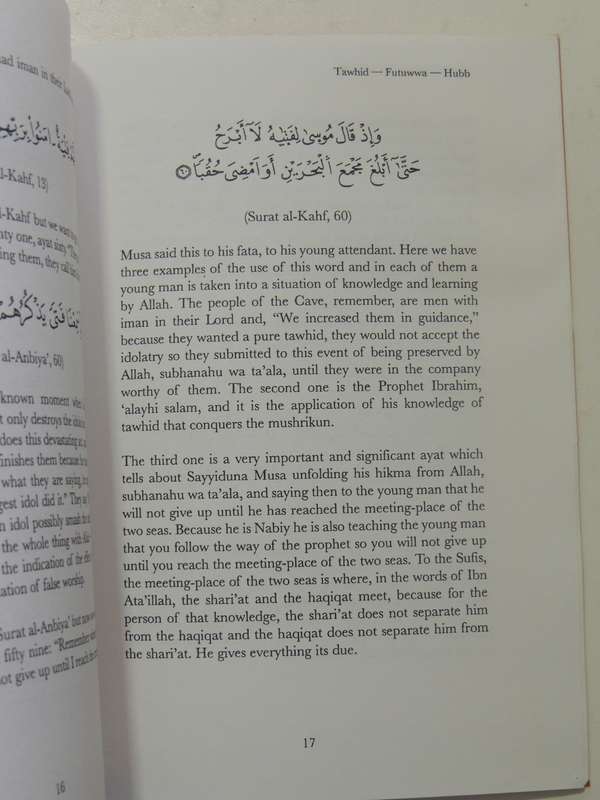 ad iman in their
al-Kahf, 13)
-Kahf but we
nty one, ayat sixty "They
ing them, they call him
يَذْكُرُهُمْ
al-Anbiya', 60)
known moment
t only destroys the idols
does this devastating
finishes them because
what they are saying,
gest idol did it." They
n idol possibly smash
the whole thing with
the indication of the
ation of false worship.
Surat al-Anbiya' but now
fifty nine: "Remember
not give up until I reach the
16
Tawhid — Futuwwa — Hubb
وَإِذْ قَالَ مُوسَىٰ لِفَتَىٰهُ لَآ أَبْرَحُ
حَتَّىٰٓ أَبْلُغَ مَجْمَعَ ٱلْبَحْرَيْنِ أَوْ أَمْضِىَ حُقُبًا ۝٦٠
(Surat al-Kahf, 60)
Musa said this to his fata, to his young attendant. Here we have
three examples of the use of this word and in each of them a
young man is taken into a situation of knowledge and learning
by Allah. The people of the Cave, remember, are men with
iman in their Lord and, “We increased them in guidance,”
because they wanted a pure tawhid, they would not accept the
idolatry so they submitted to this event of being preserved by
Allah, subhanahu wa ta’ala, until they were in the company
worthy of them. The second one is the Prophet Ibrahim,
‘alayhi salam, and it is the application of his knowledge of
tawhid that conquers the mushrikun.
The third one is a very important and significant ayat which
tells about Sayyiduna Musa unfolding his hikma from Allah,
subhanahu wa ta’ala, and saying then to the young man that he
will not give up until he has reached the meeting-place of the
two seas. Because he is Nabiy he is also teaching the young man
that you follow the way of the prophet so you will not give up
until you reach the meeting-place of the two seas. To the Sufis,
the meeting-place of the two seas is where, in the words of Ibn
Ata’illah, the shari’at and the haqiqat meet, because for the
person of that knowledge, the shari’at does not separate him
from the haqiqat and the haqiqat does not separate him from
the shari’at. He gives everything its due.
17